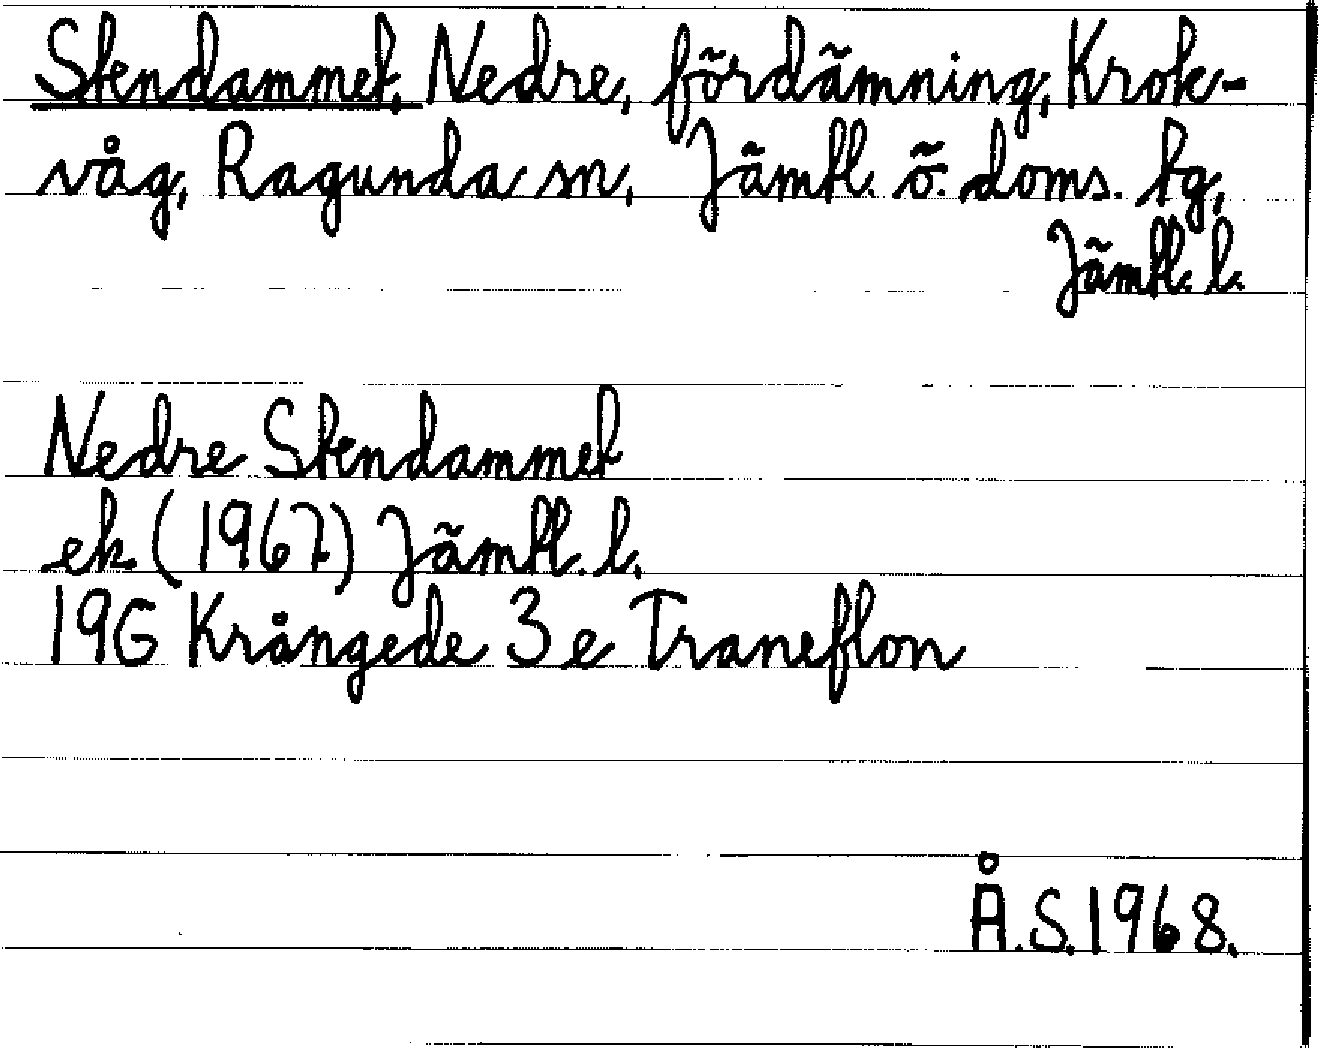 Stendammet, Nedre, fördämning, Krok-
våg, Ragunda sn, Jämtl. ö. doms. tg,
Jämtl. l.
Nedre Stendammet
ek (1967) Jämtl. l.
19G Krångede 3e Traneflon
Å.S. 1968.